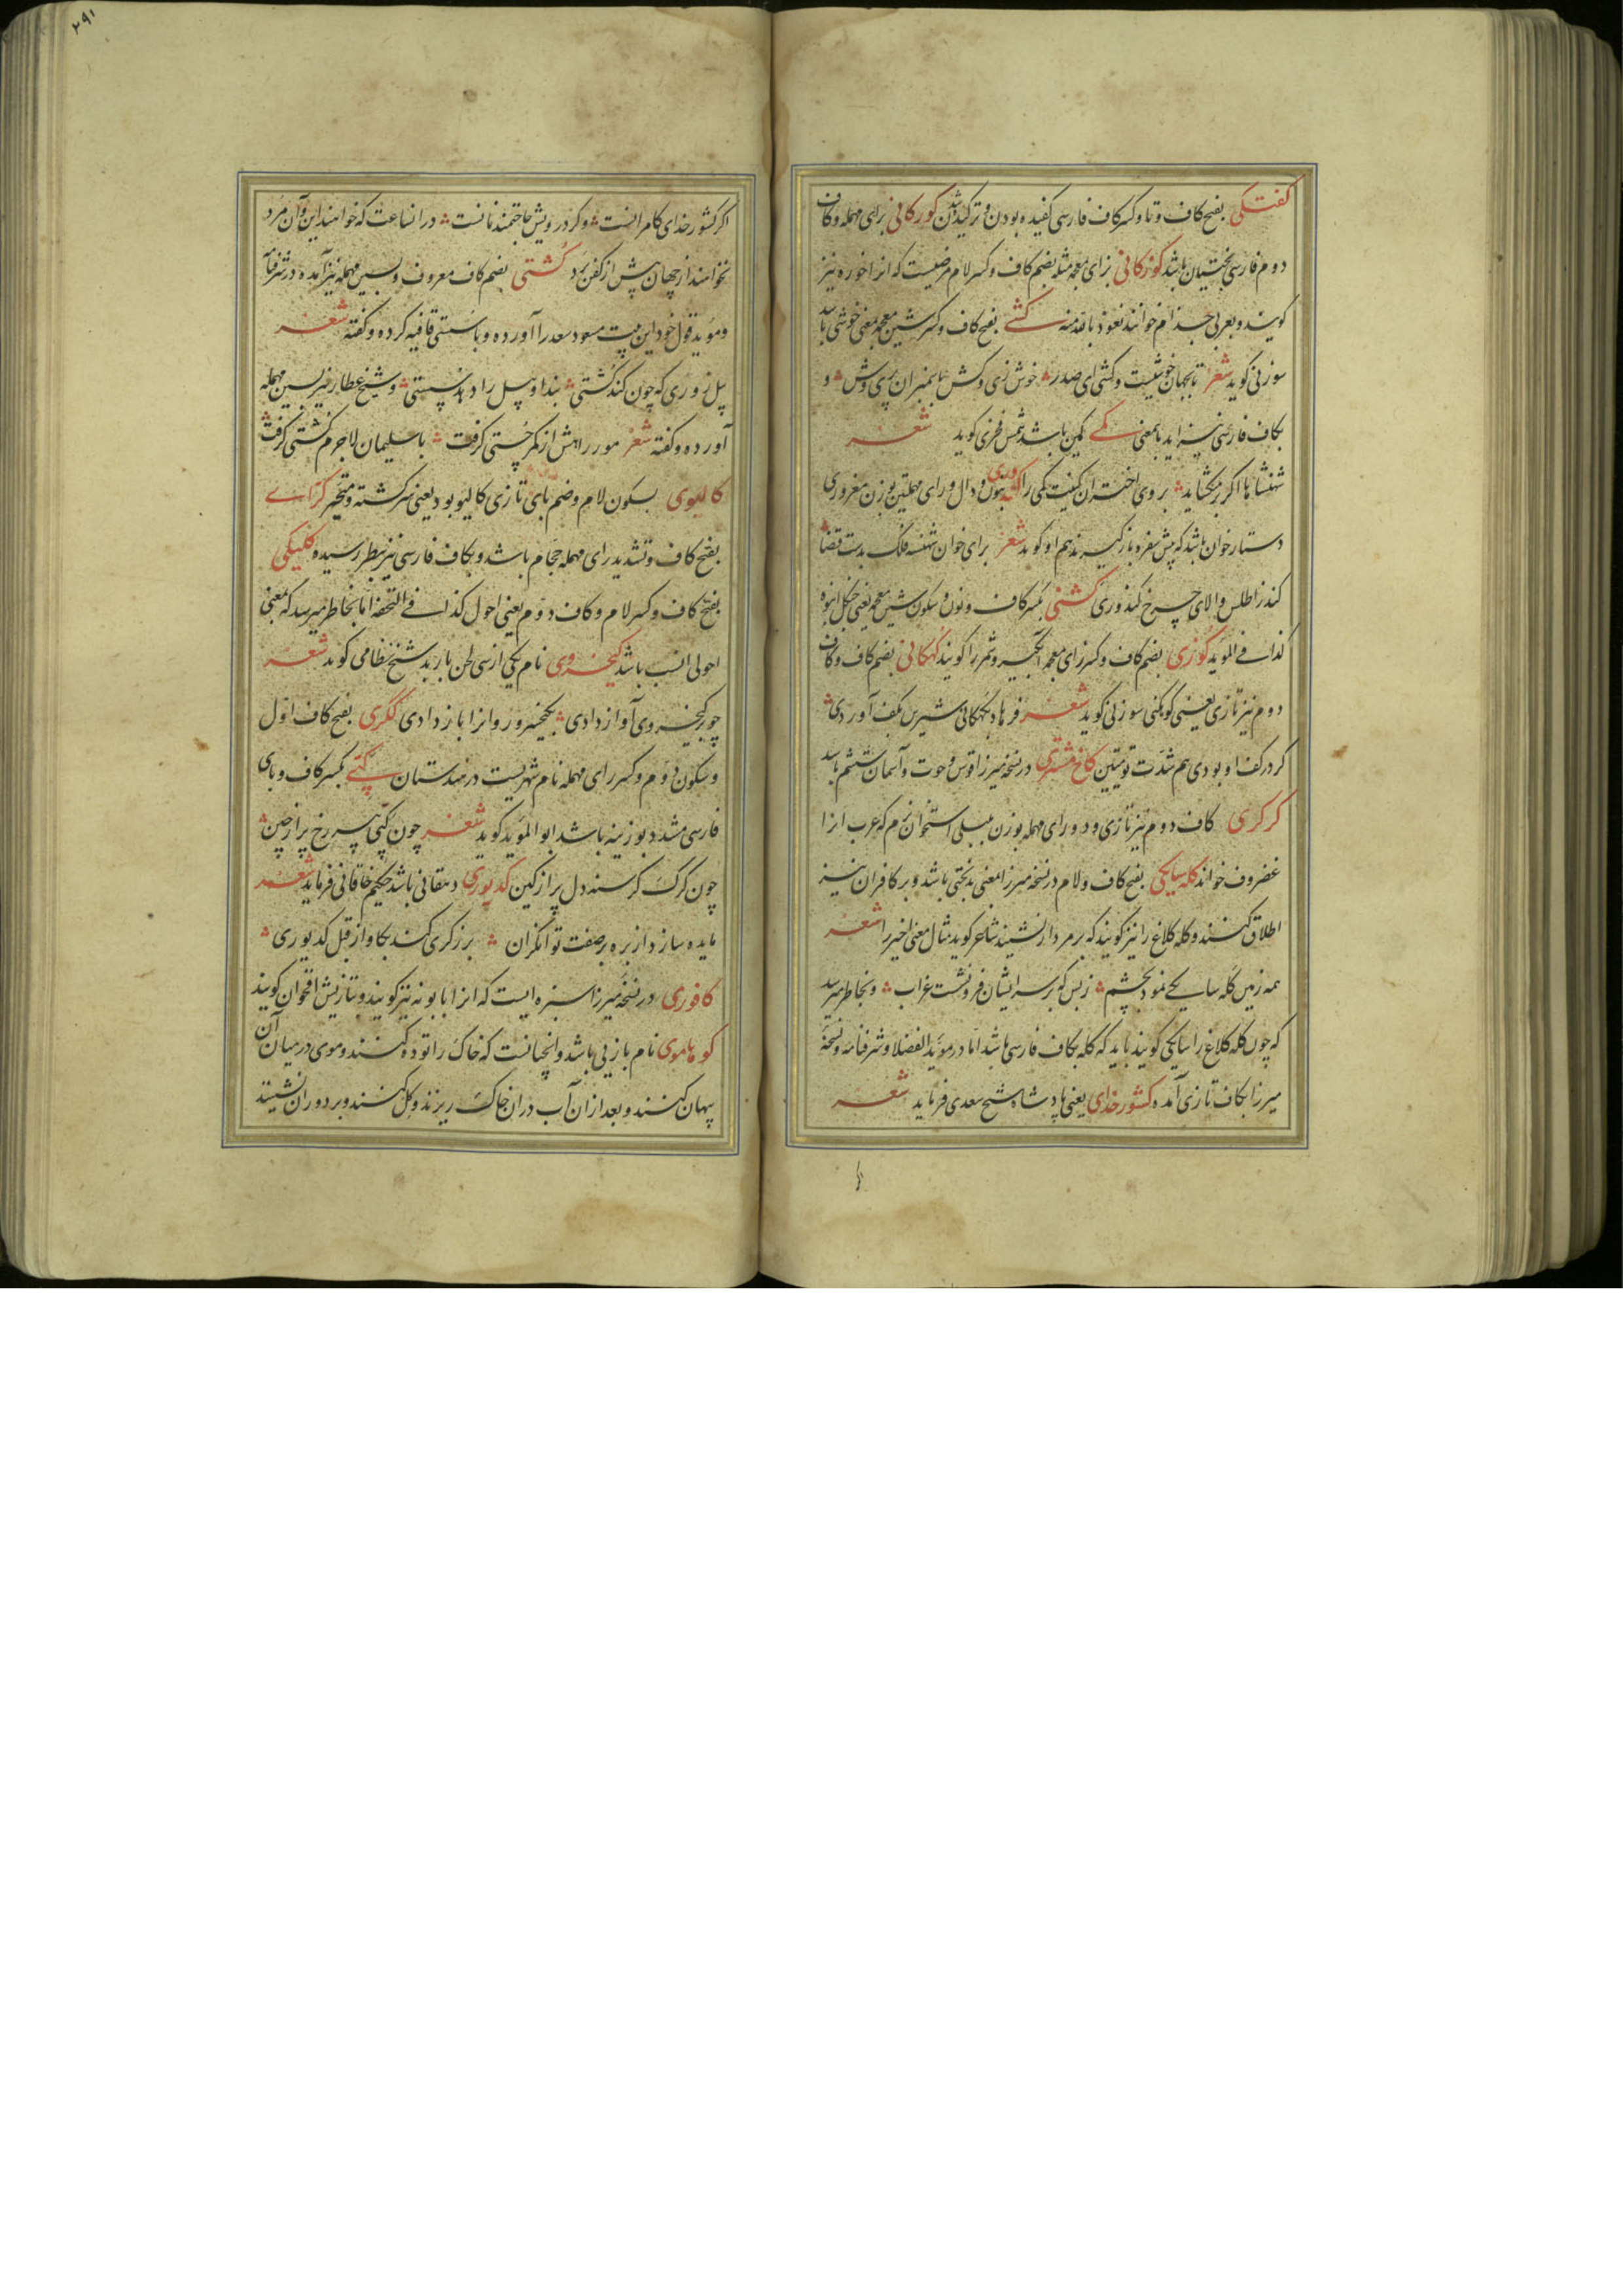 کفتکی بفتح کاف و تا و کسر کاف فارسی کفیده بودن و ترکیده شدن کورکانی برای مهمله و کاف
دوم فارسی سختیان باشد کوزکانی بزای معجمه مثله بضم کاف و کسر لام مرضیست که انرا خوره نیز
کویند و بعربی جذام خوانند نعوذ بالله منه کشی بفتح کاف و کسر شین معجمه بمعنی خوشی باشد
سوزنی کوید شعر تا بجهان خوشیست و کشی ای صدر خوش زی و کش با بمنبران پری وش و
بکاف فارسی نیز اید بامعنی کمی کمین باشد شمس فخری کوید شعر
شهنشاها اکر بکشاید بروی اختران کمیت کمی را کندوری بنون و دال و رای مهملتین بوزن مغروری
دستار خوان باشد که پیش سفره باز کیرند هم او کوید شعر برای خوان شهنشه فلک بدست قضا
کند ز اطلس والای چرخ کندوری کشنی بکسر کاف و نون و سکون شین معجمه یعنی جنکل انبوه
کذا فی الموید کوزی بضم کاف و کسر زای معجمه آبکیر و شمر را کویند کهکانی بضم کاف و کاف
دوم نیز تازی یعنی کوهکنی سوزنی کوید شعر فرهاد بکهکانی شیرین بکف آوردی
کر در کف او بودی هم شدت تو میتین کاخ مشتری در نسخه میرزا قوس و حوت و آسمان ششم باشد
کرکری کاف دوم نیز تازی و دو رای مهمله بوزن بلبلی استخوان نرم که عرب انرا
غضروف خواند کله سایکی بفتح کاف و لام در نسخه میرزا بمعنی بدبختی باشد و بر کافران نیز
اطلاق کنند و کله کلاغ را نیز کویند که بر مردار نشیند شاعر کوید مثال معنی اخیر را شعر
همه زمین کله سایکی نمود بچشم ز بس که بر سر ایشان فرو نشست غراب و بخاطر میرسد
که چون کله کلاغ را سایکی کویند باید که کله بکاف فارسی باشد اما در موید الفضلا و شرفنامه و نسخه
میرزا بکاف تازی آمده کشور خدای یعنی پادشاه شیخ سعدی فرماید شعر
۲۹۱
اکر کشور خدای کامرانست و کر درویش حاجتمند نانست در انساعت که خواهند این و آن مرد
نخواهند از جهان بیش از کفن برد کشتی بضم کاف معروف و بسین مهمله نیز آمده در شرفنامه
و موید قول خود این بیت مسعود سعد را آورده و با سستی قافیه کرده و کفته شعر
پیل زوری که چون کند کشتی بند او پیل را دهد سستی و شیخ عطار نیز بسین مهمله
آورده و کفته شعر مور راهش از کمر چستی کرفت با سلیمان لاجرم کشتی کرفت
کالیوی بسکون لام و ضم یای تازی کالیو بود یعنی سرکشته و متحیر کرّای
بفتح کاف و تشدید رای مهمله حجام باشد و بکاف فارسی نیز بنظر رسیده کلیکی
بفتح کاف و کسر لام و کاف دوم یعنی احول کذا فی التحفه اما بخاطر میرسد که بمعنی
احولی انسب باشد کیخسروی نام یکی از سی لحن باربد شیخ نظامی کوید شعر
چو بر کیخسروی آواز دادی بکیخسرو روانرا باز دادی ککری بفتح کاف اول
و سکون دوم و کسر رای مهمله نام شهریست در هندستان کپی بکسر کاف و بای
فارسی مشدد بوزینه باشد ابو الموید کوید شعر چون کپی پیر رخ پر از چین
چون کرک کرسنه دل پر از کین کدیوری دهقانی باشد حکیم خاقانی فرماید شعر
مایده سازد از بره بر صفت توانکران برزکری کند بکاو از قبل کدیوری
کافوری در نسخه میرزا سبزه ایست که انرا بابونه نیز کویند و بتازیش اقحوان کویند
کوهاموی نام بازیی باشد و انچنانست که خاک را توده کنند و موی در میان آن
پنهان کنند و بعد ازان آب دران خاک ریزند و کل کنند و بر دوران نشینند